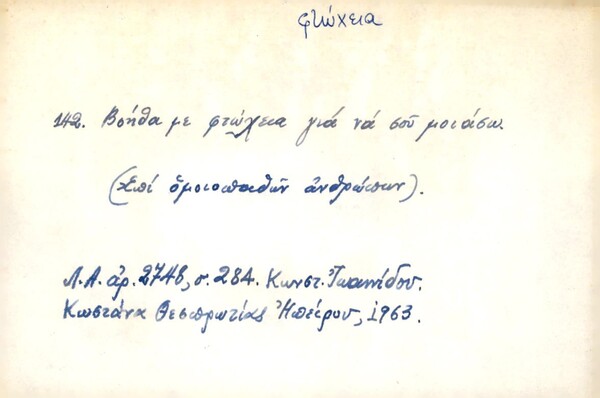 φτώχεια
142. Βοήθα με φτώχεια γιά νά σοῦ μοιάσω.
(Ἐπί ὁμοιοπαθῶν ἀνθρώπων).
Λ.Α. ἀρ. 2748, σ. 284. Κωνστ. Ἰωαννίδου.
Κωστάνα Θεσπρωτίας Ἠπείρου, 1963.